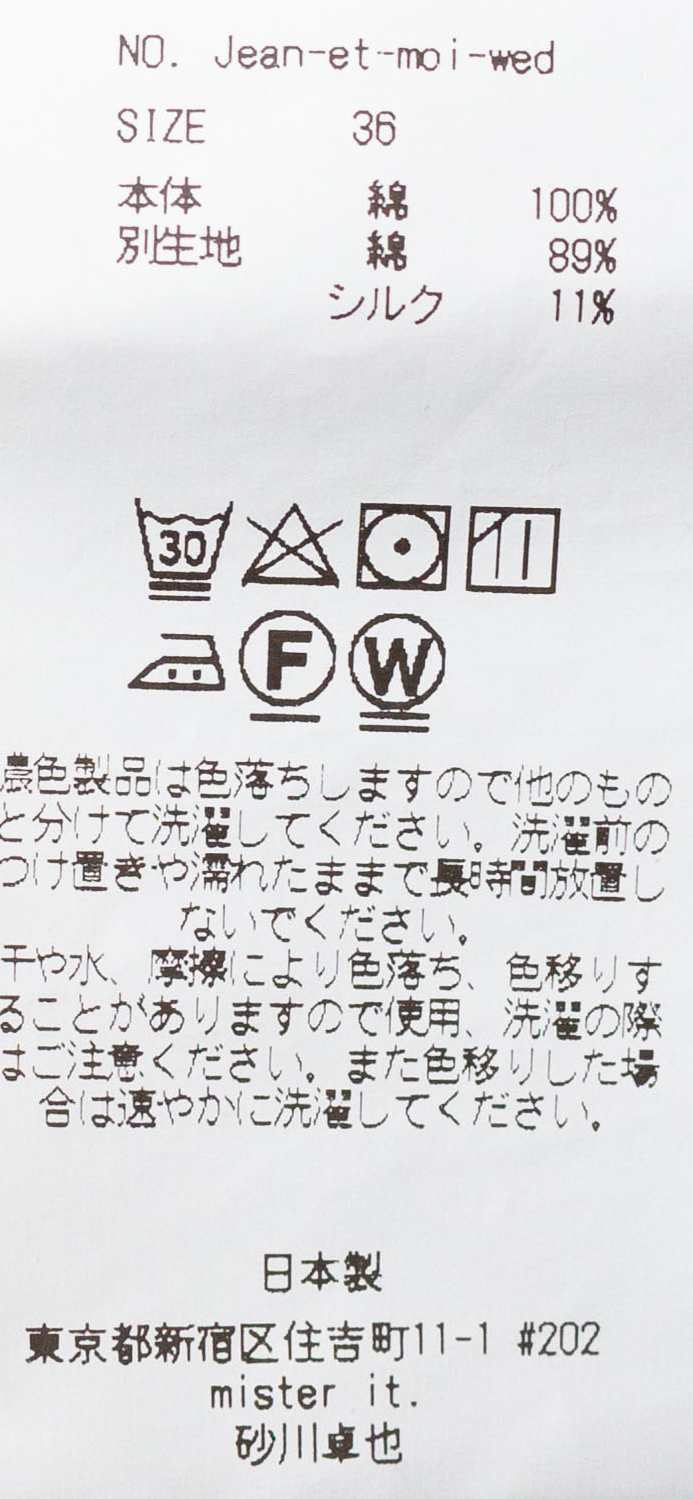 NO. Jean-et-moi-wed
SIZE 36
本体 綿 100%
別生地 綿 89%
シルク 11%
30
F W
濃色製品は色落ちしますので他のもの
と分けて洗濯してください。洗濯前の
つけ置きや濡れたままで長時間放置し
ないでください。
汗や水、摩擦により色落ち、色移りす
ることがありますので使用、洗濯の際
はご注意ください。また色移りした場
合は速やかに洗濯してください。
日本製
東京都新宿区住吉町11-1 #202
mister it.
砂川卓也